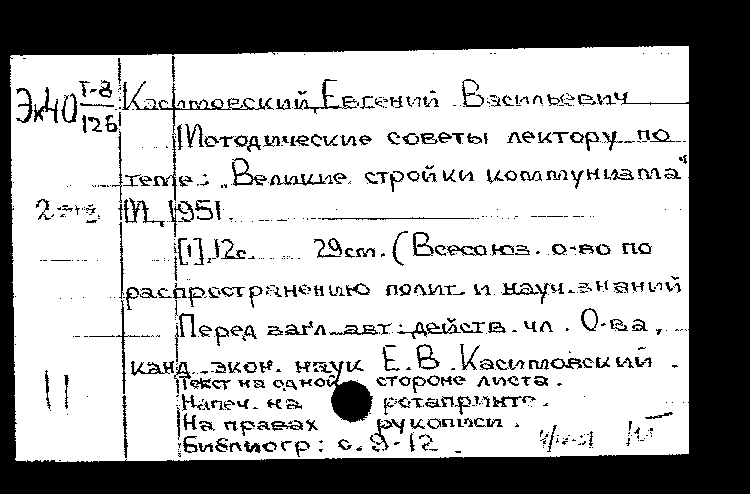 Эк40 Т-8/126
Касимовский, Евгений Васильевич
Мотодические советы лектору по
теме: „Великие стройки коммунизма“
2 экз
М., 1951.
[1], 12с. 29cm. (Всесоюз. о-во по
распространению полит. и науч. знаний
Перед загл. авт: действ. чл. О-ва,
канд. экон. наук Е.В. Касимовский.
11
Текст на одной стороне листа.
Напеч. на ротапринте.
На правах рукописи.
Библиогр: с. 9-12.